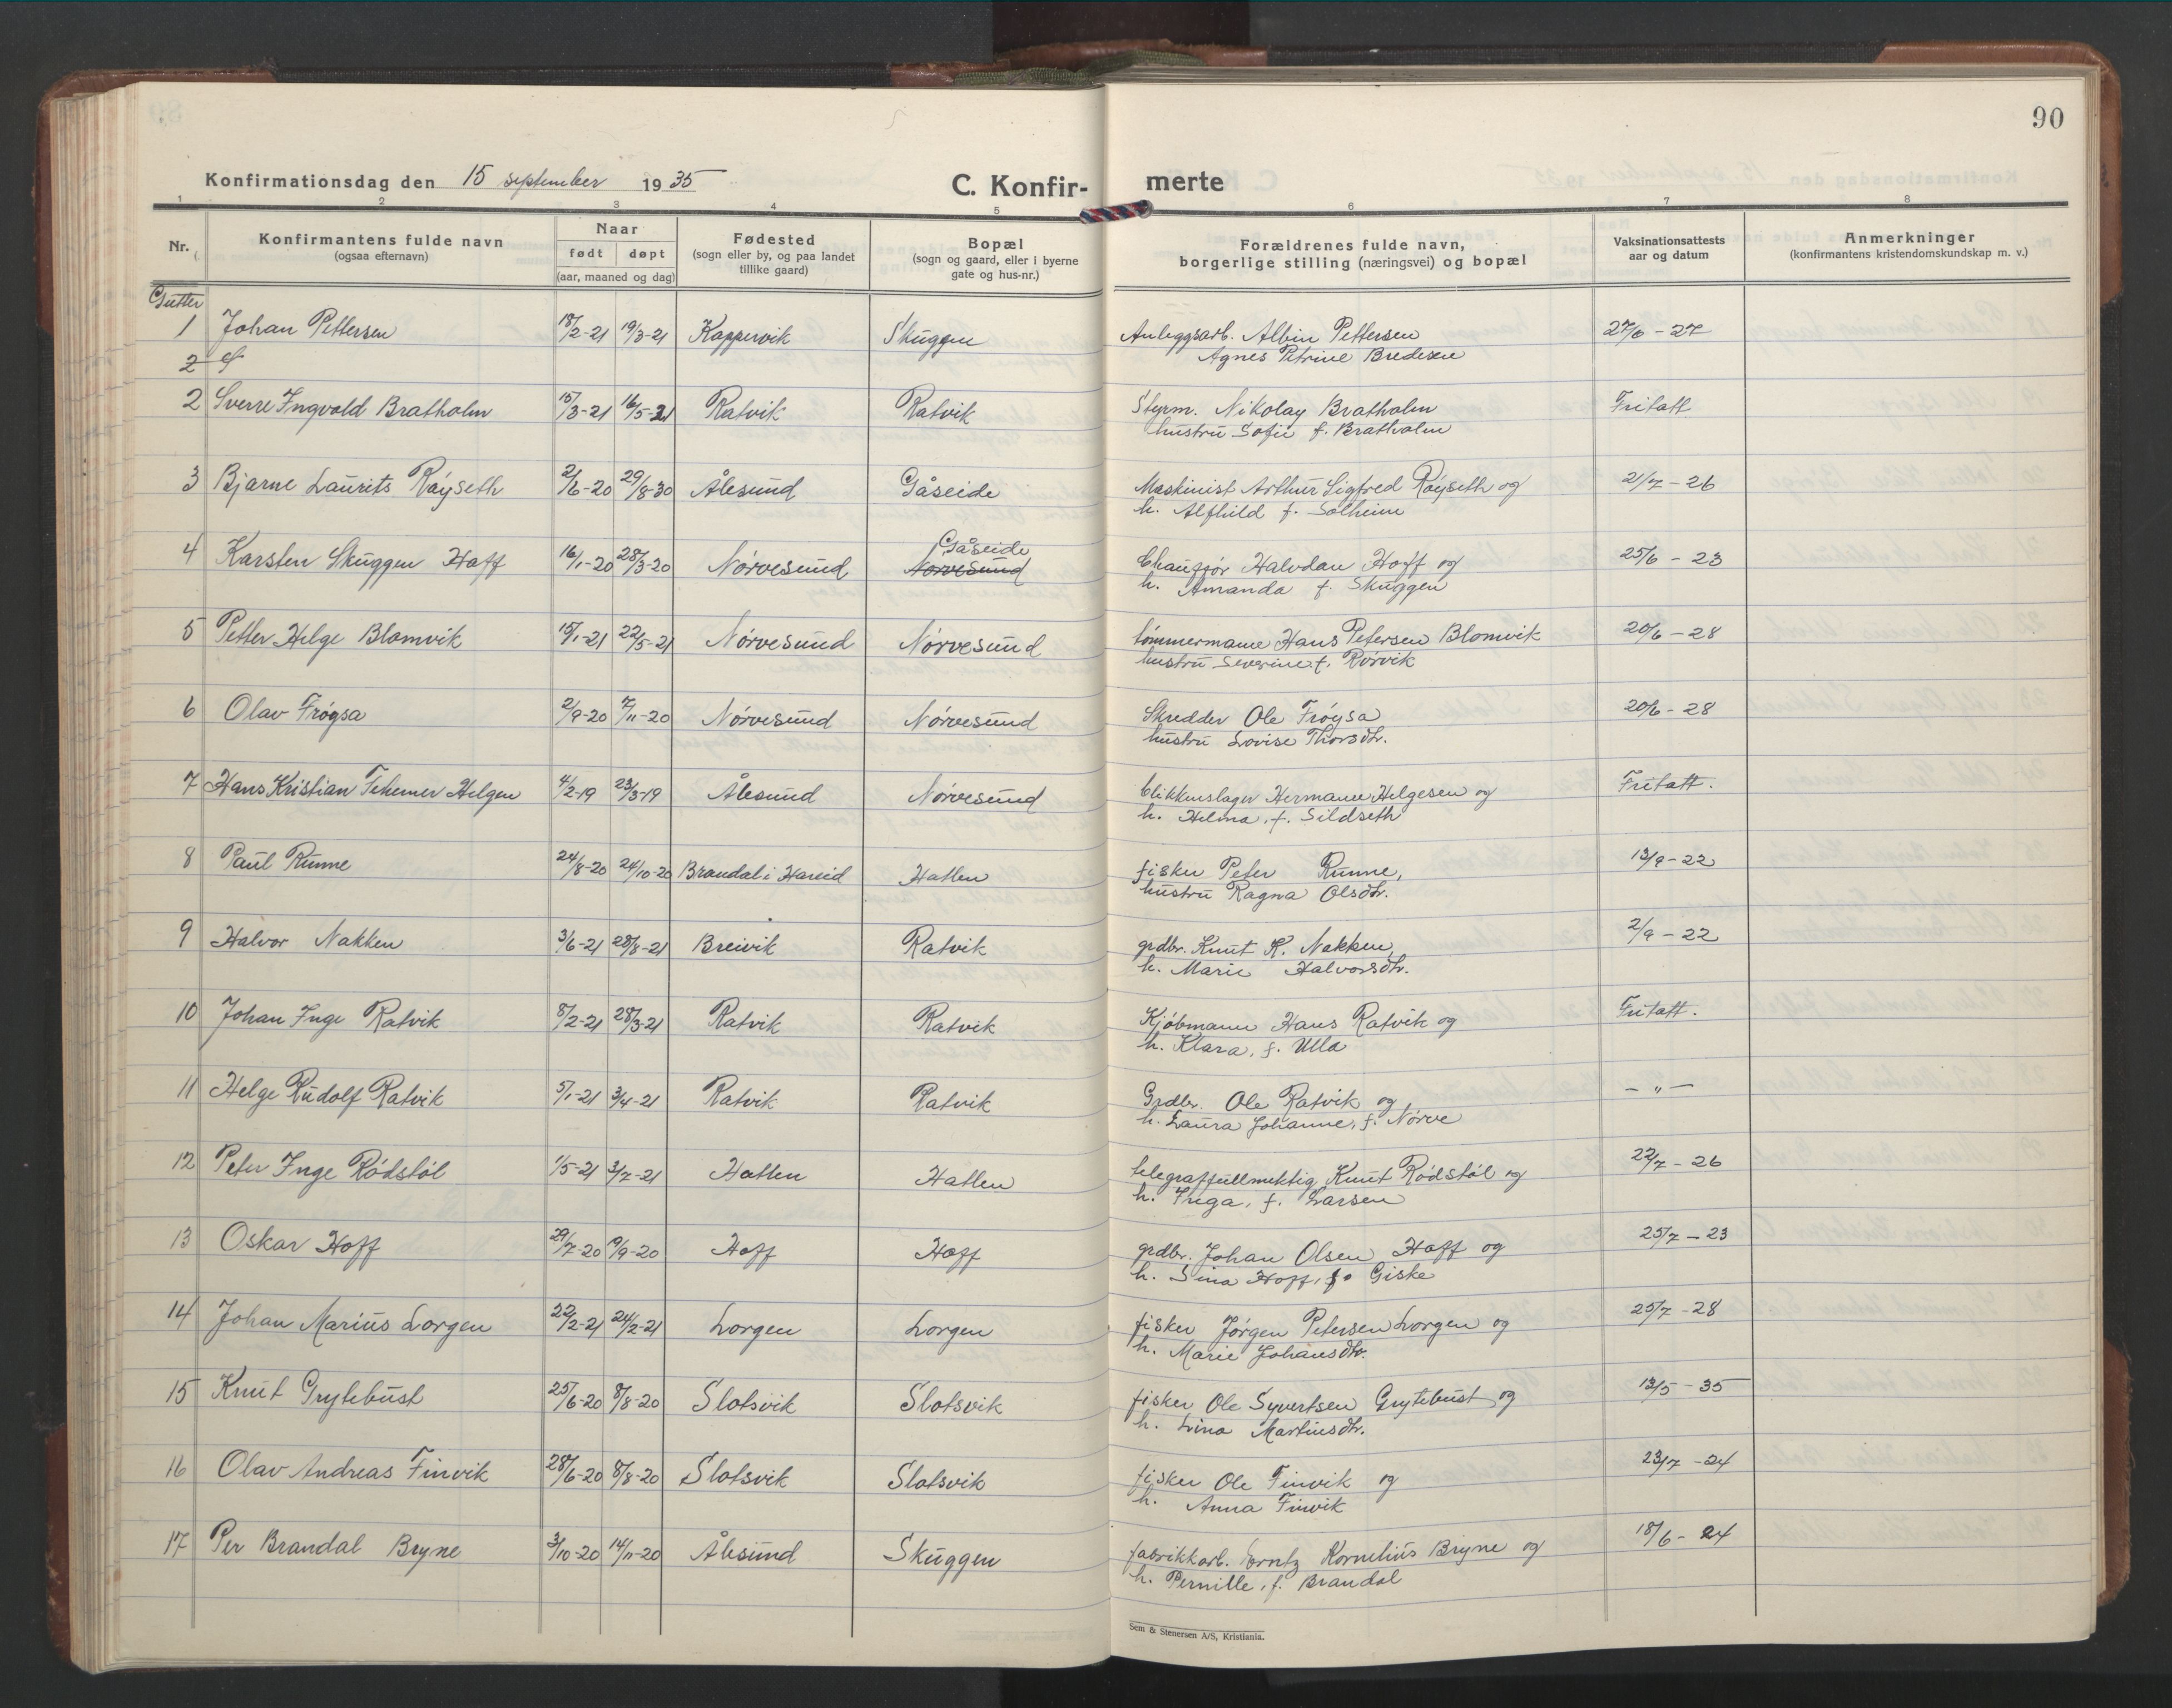 90
Konfirmationsdag den 15 september 1935
C. Konfir-merte
1 2 3 4 5 6 7 8
Nr.
Konfirmantens fulde navn
(ogsaa efternavn)
Naar
født døpt
(aar, maaned og dag)
Fødested
(sogn eller by, og paa landet
tillike gaard)
Bopæl
(sogn og gaard, eller i byerne
gate og hus-nr.)
Forældrenes fulde navn,
borgerlige stilling (næringsvei) og bopæl
Vaksinationsattests
aar og datum
Anmerkninger
(konfirmantens kristendomskundskap m. v.)
Gutter
1 Johan Pettersen 18/2-21 19/3-21 Kappervik Skuggen Anleggsarb. Albin Pettersen 27/6-27
Agnes Petrine Bredesen
2
2 Sverre Ingvald Bratholm 15/3-21 16/5-21 Ratvik Ratvik Styrm. Nikolay Bratholm Fritatt
hustru Sofie f. Bratholm
3 Bjarne Laurits Röyseth 2/6-20 29/8-30 Ålesund Gåseide Maskinist Arthur Sigfred Röyseth og 21/7-26
h. Alfhild f. Solheim
Gåseide
4 Karsten Skuggen Hoff 16/1-20 28/3-20 Nörvesund Nörvesund Chauffør Halvdan Hoff og 25/6-23
h. Amanda f. Skuggen
5 Petter Helge Blomvik 15/1-21 22/5-21 Nörvesund Nörvesund tömmermann Hans Petersen Blomvik 20/6-28
hustru Severine f. Rörvik
6 Olav Fröysa 2/9-20 7/11-20 Nörvesund Nörvesund Skredder Ole Fröysa 20/6-28
hustru Lovise Thorsdtr.
7 Hans Kristian Helgen 4/2-19 23/3-19 Ålesund Nörvesund blikkenslager Hermann Helgesen og Fritatt.
h. Helma, f. Sildseth
8 Paul Runne 24/8-20 24/10-20 Brandal i Hareid Hatlen fisker Peter Runne, 13/9-22
hustru Ragna Olsdtr.
9 Halvor Nakken 3/6-21 28/8-21 Breivik Ratvik grdbr. Knut K. Nakken, 2/9-22
h. Marie Halvorsdtr.
10 Johan Inge Ratvik 8/2-21 28/3-21 Ratvik Ratvik Kjöbmann Hans Ratvik og Fritatt.
h. Klara, f. Ulla
11 Helge Rudolf Ratvik 5/1-21 3/4-21 Ratvik Ratvik Grdbr. Ole Ratvik og - " -
h. Laura Johanne, f. Nörve
12 Peter Inge Rödstöl 1/5-21 3/7-21 Hatlen Hatlen telegraffullmektig Knut Rödstöl og 22/7-26
h. Inga, f. Larsen
13 Oskar Hoff 29/7-20 19/9-20 Hoff Hoff grdbr. Johan Olsen Hoff og 25/7-23
h. Sina Hoff, f. Giske
14 Johan Marius Lorgen 22/2-21 24/2-21 Lorgen Lorgen fisker Jörgen Petersen Lorgen og 25/7-28
h. Marie Johansdtr.
15 Knut Grytebust 25/6-20 8/8-20 Slotsvik Slotsvik fisker Ole Syvertsen Grytebust og 13/5-35
h. Lina Martinsdtr.
16 Olav Andreas Finvik 28/6-20 8/8-20 Slotsvik Slotsvik fisker Ole Finvik og 23/7-24
h. Anna Finvik
17 Per Brandal Bryne 3/10-20 14/11-20 Ålesund Skuggen fabrikkarb. Kornelius Bryne og 18/6-24
h. Pernille, f. Brandal
Sem & Stenersen A/S, Kristiania.